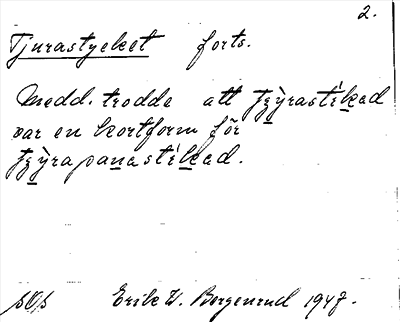 2.
Tjurastycket forts.
Medd. trodde att tzỳrastíkad
var en kortform för
tzỳrapanastíkad.
sOs Erik W. Borgenrud 1947.